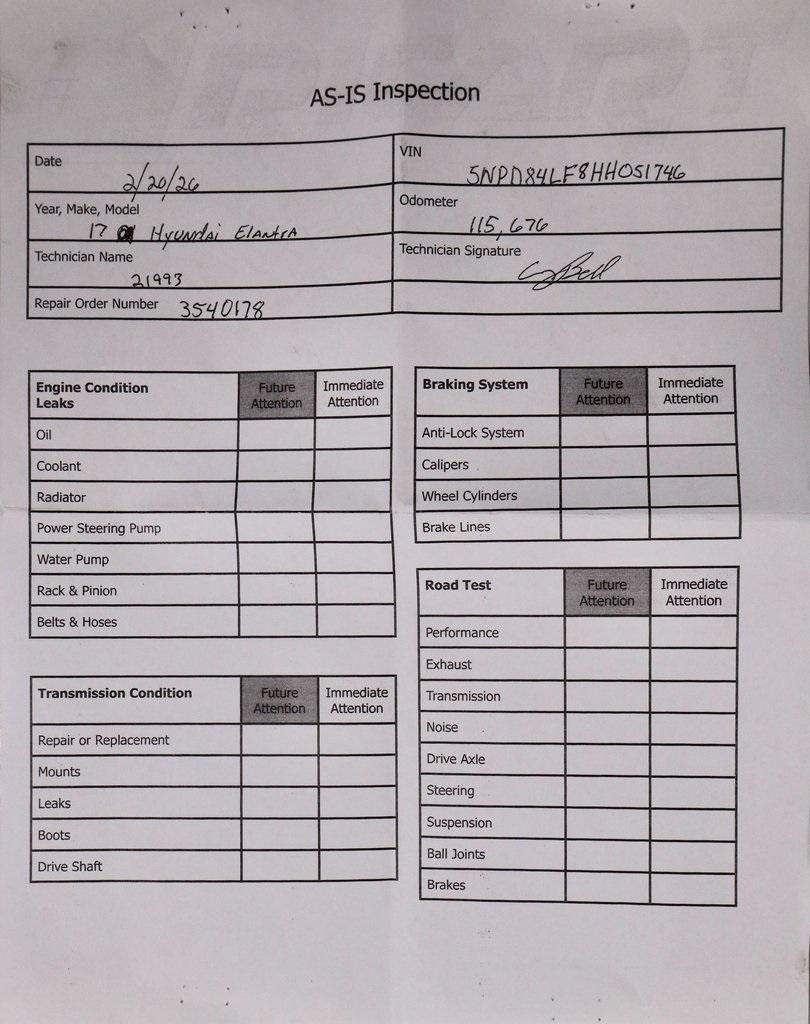 AS-IS Inspection
Date 2/20/26
VIN 5NPD84LF8HH051746
Year, Make, Model 17 Hyundai Elantra
Odometer 115,676
Technician Name 21993
Technician Signature
Repair Order Number 3540178
Engine Condition Leaks Future Attention Immediate Attention
Oil
Coolant
Radiator
Power Steering Pump
Water Pump
Rack & Pinion
Belts & Hoses
Transmission Condition Future Attention Immediate Attention
Repair or Replacement
Mounts
Leaks
Boots
Drive Shaft
Braking System Future Attention Immediate Attention
Anti-Lock System
Calipers
Wheel Cylinders
Brake Lines
Road Test Future Attention Immediate Attention
Performance
Exhaust
Transmission
Noise
Drive Axle
Steering
Suspension
Ball Joints
Brakes